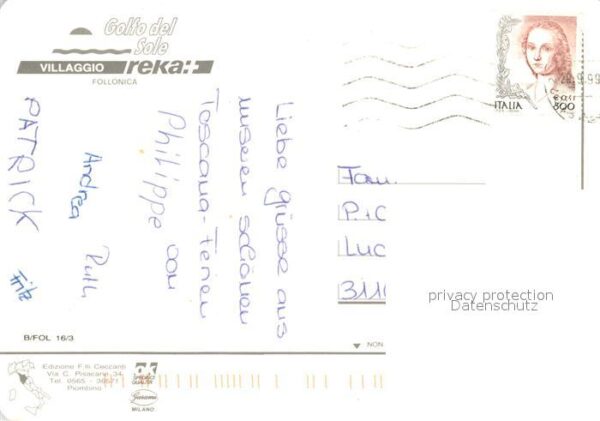 Golfo del
Sole
VILLAGGIO reka:+
FOLLONICA
ITALIA
800
29.9.99
Liebe grüsse aus
unseren schönen
Toscana-Ferien
Philippe von
Andrea Ruth
PATRICK Fritz
Fam.
P.+C
Luc
3110
privacy protection
Datenschutz
B/FOL 16/3
NON
Edizione F.lli Ceccanti
Via C. Pisacane 34
Tel. 0565 - 36571
Piombino
MILANO